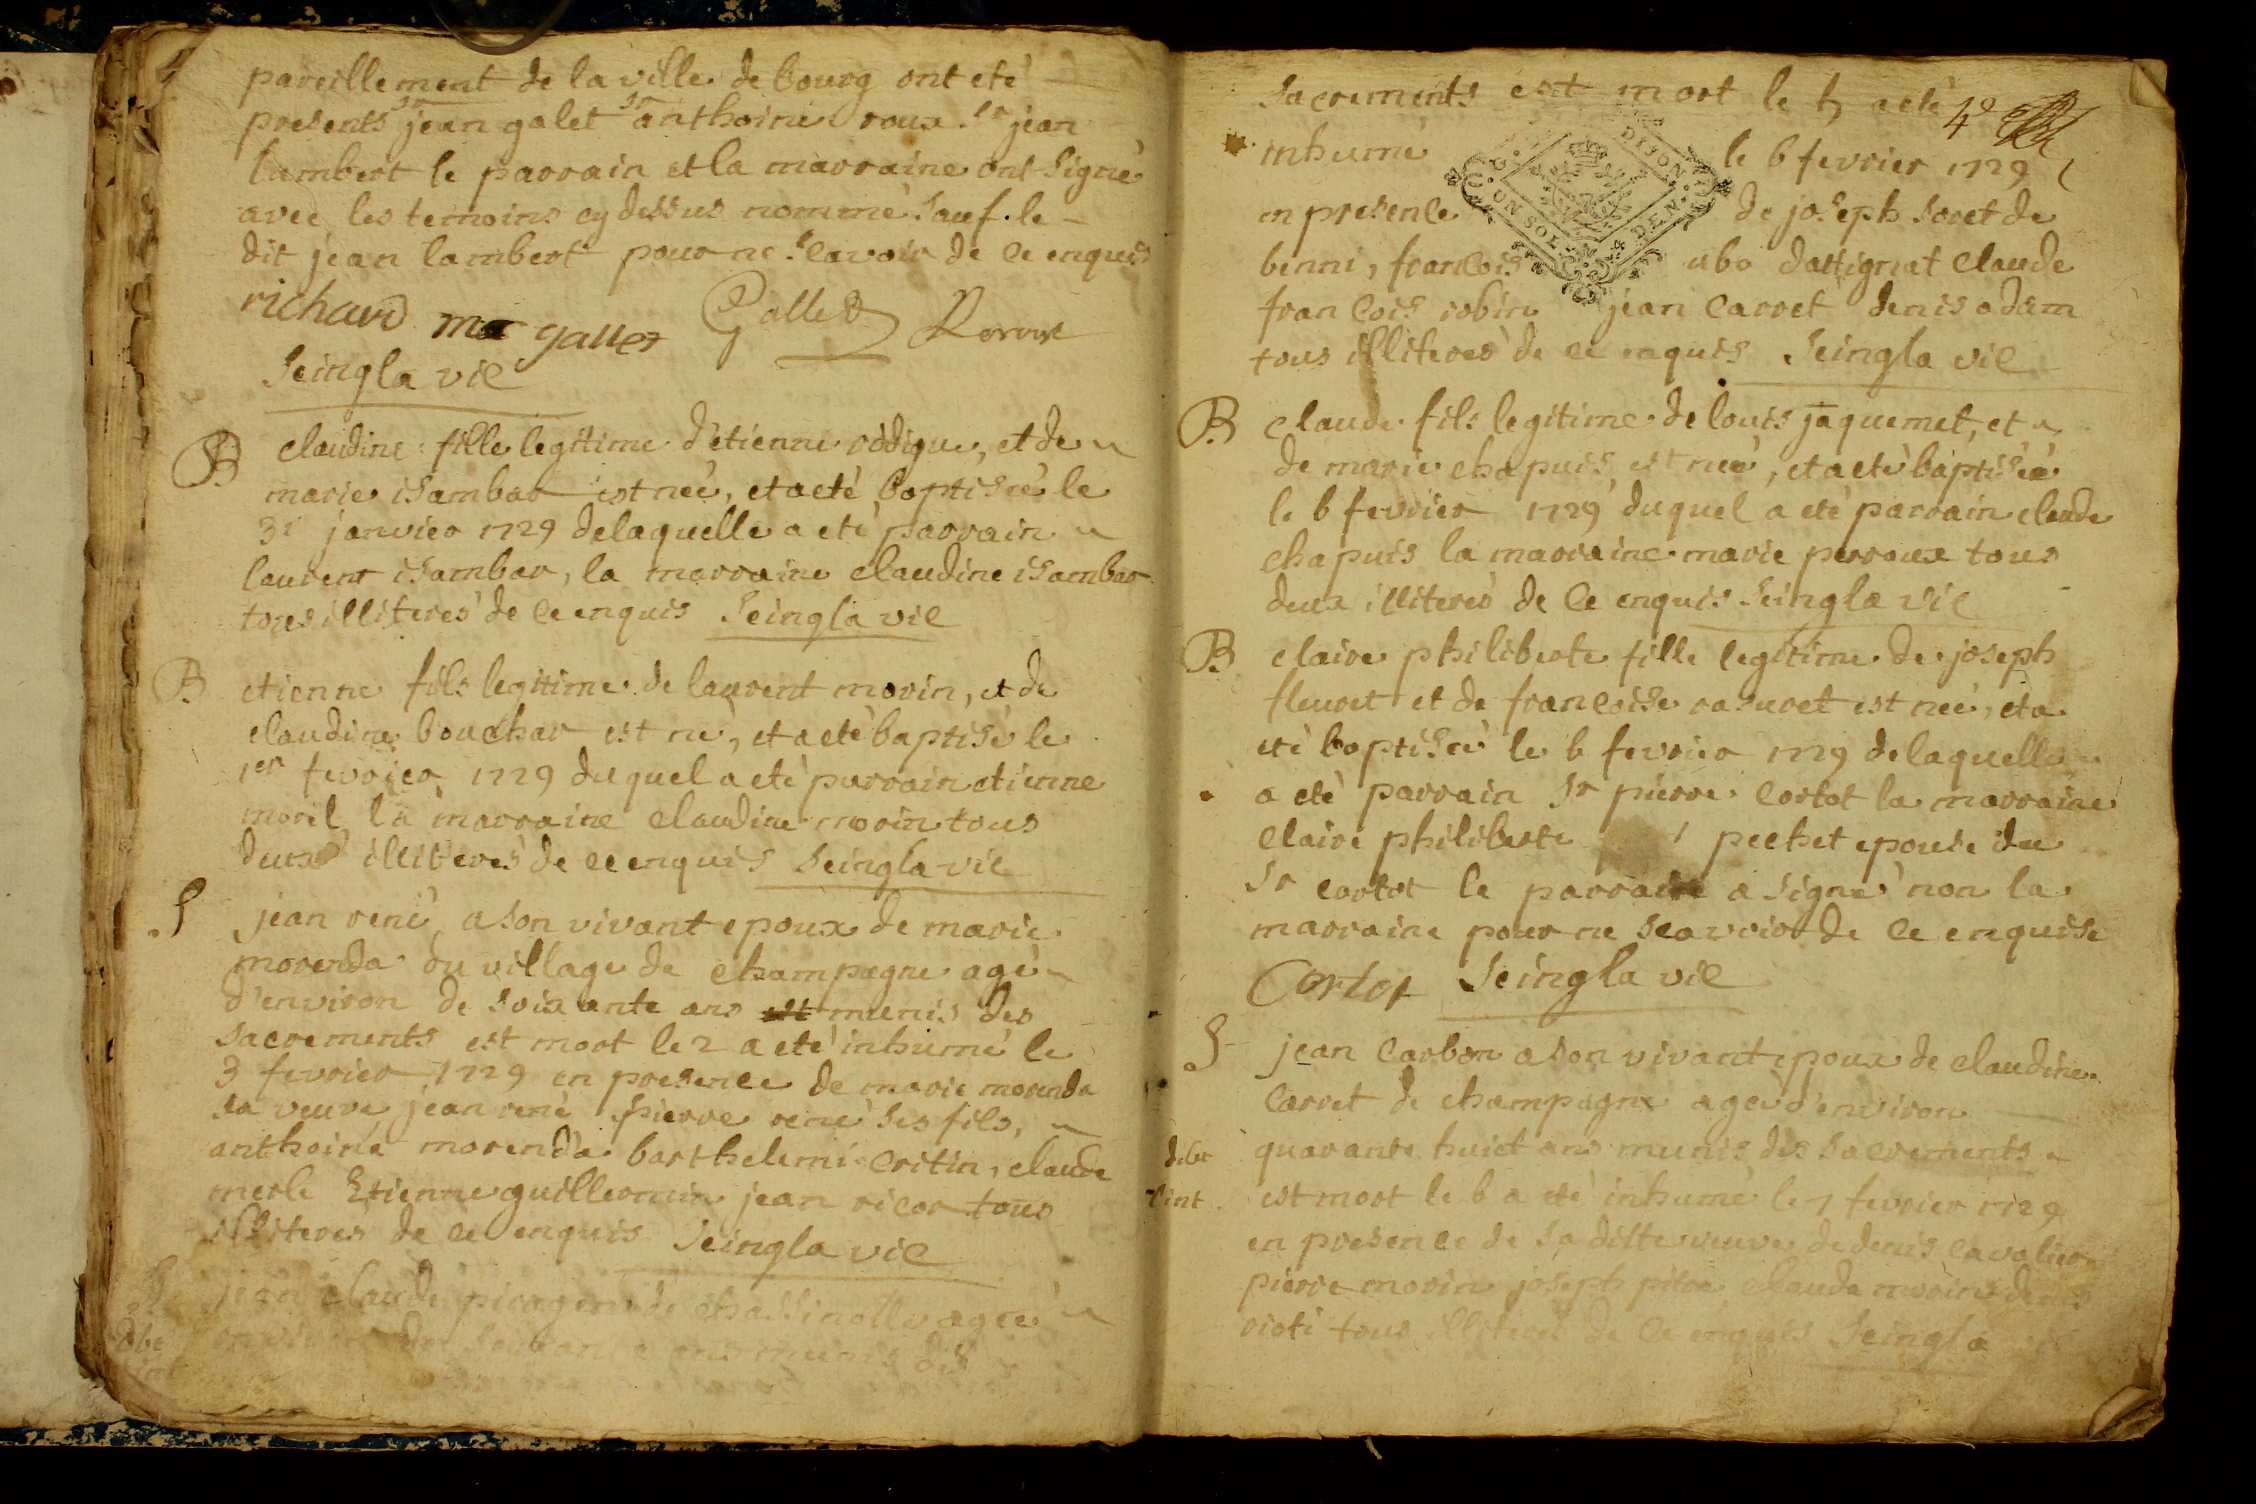 pareillement de la ville de bourg ont eté
presents sr jean galet sr anthoine roux sr jean
lambert le parrain et la marraine ont signé
avec les temoins cy dessus nommé sauf le
dit jean lambert pour ne scavoir de ce enquis
richard ma galler Gallet
Seingla vic
B claudine fille legitime d'etienne rodigue, et de
marie isambar est neé, et a eté baptiseé le
31 janvier 1729 de laquelle a eté parrain
laurent isambar, la marraine claudine isambar
tous illiterés de ce enquis Seingla vic
B etienne fils legitime de laurent morin, et de
claudine bouchar est né, et a eté baptisé le
1er fevrier 1729 du quel a eté parrain etienne
morel la marraine claudine morin tous
deux illiterés de ce enquis Seingla vic
S jean rené, a son vivant epoux de marie
morenda du village de champagne agé
d'environ de soixante ans est munis des
sacrements est mort le 2 a eté inhumé le
3 fevrier 1729 en presence de marie morenda
sa veuve jean rené pierre rené ses fils,
anthoine morenda barthelemi critin, claude
merle Etienne guillermin jean ricor tous
illiterés de ce enquis Seingla vic
S jean claude de chassinolle ageé
ans munis des
sacrements est mort le 5 a eté
4e
inhumé le 6 fevrier 1729
DIJON
CON SOL DEN
en presence de joseph soret de
benni, francois ubo dattignat claude
francois robin jean carret denis adam
tous illiterés de ce enquis Seingla vic
B claude fils legitime de louis jaquemet, et
de marie chapuis est neé, et a eté baptiseé
le 6 fevrier 1729 duquel a eté parrain claude
chapuis la marraine marie perroux tous
deux illiterés de ce enquis Seingla vic
B claire philiberte fille legitime de joseph
fleuret et de francoise rasuret est neé, et a
eté baptiseé le 6 fevrier 1729 de laquelle
a eté parrain sr pierre cortot la marraine
claire philiberte pechet epouse du
sr cortot le parrain a signé non la
marraine pour ne scavoir de ce enquise
Cortot Seingla vic
S jean carbon a son vivant epoux de claudine
carret de champagne ageé d'environ
quarante huict ans munis des sacrements
est mort le 6 a eté inhumé le 7 fevrier 1729
en presence de sa ditte veuve de denis cavalier
pierre morin joseph pitre claude morin denis
vioti tous illiterés de ce enquis Seingla